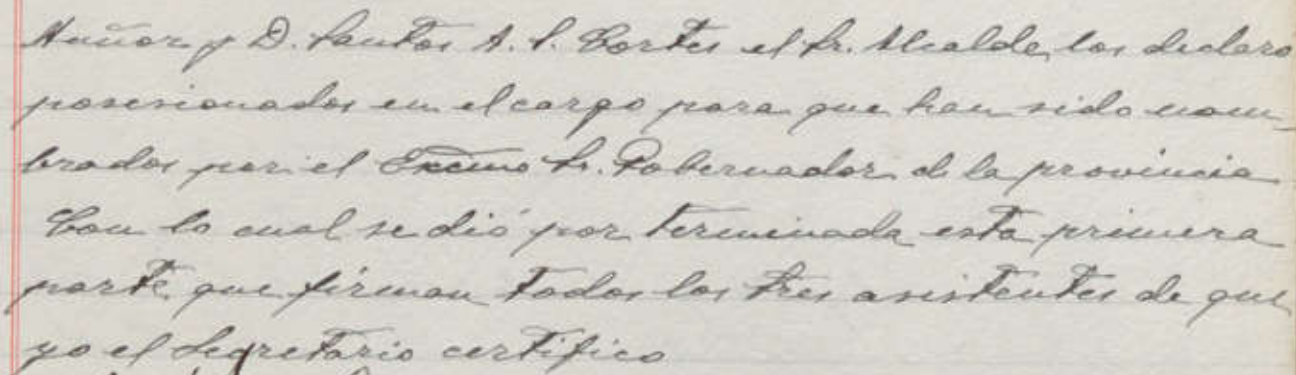 Muñoz y D. Santos A. S. Cortes el Sr. Alcalde, los declaro
posesionados en el cargo para que han sido nom-
brados por el Excmo Sr. Gobernador de la provincia
Con lo cual se dió por terminada esta primera
parte que firman todos los Sres asistentes de que
yo el Secretario certifico